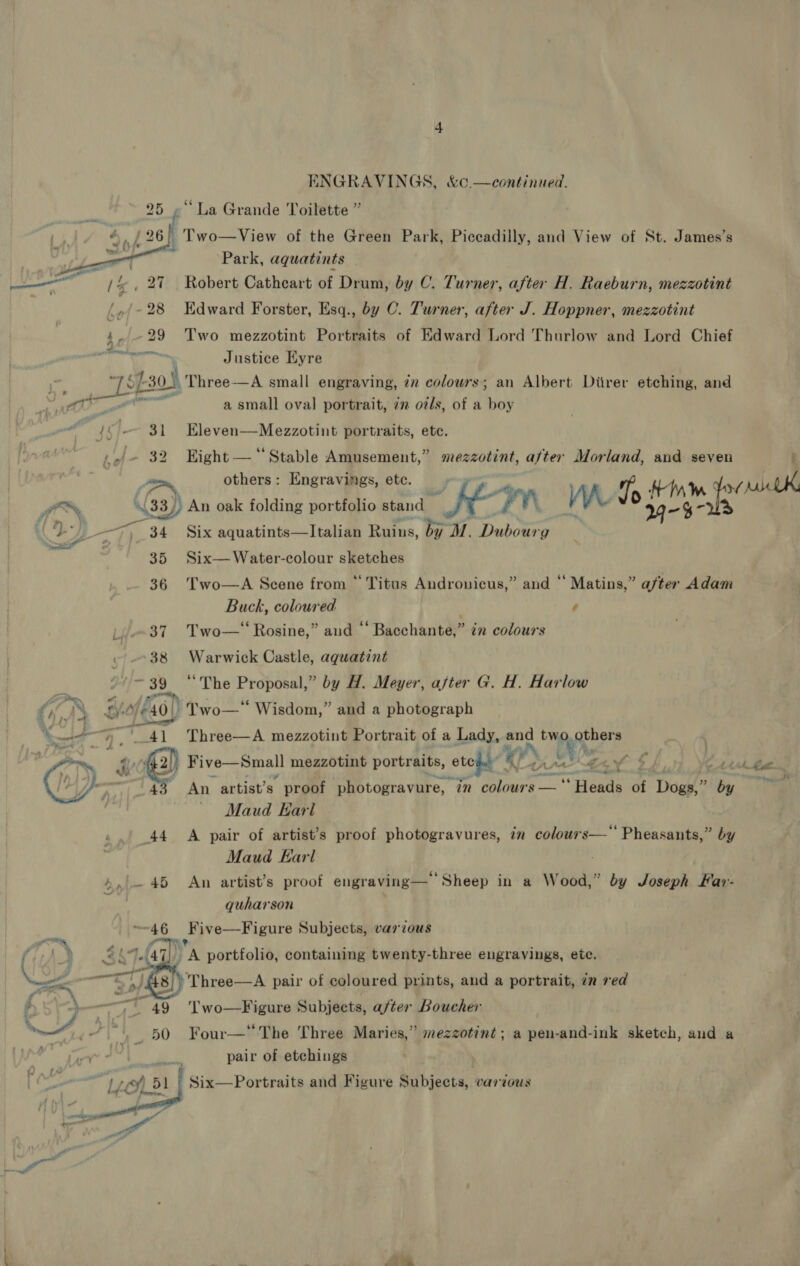 4
ENGRAVINGS, &c.—continued.
25 “La Grande Toilette”
26 Two—View of the Green Park, Piccadilly, and View of St. James’s
Park, aquatints
27 Robert Cathcart of Drum, by C. Turner, after H. Raeburn, mezzotint
28 Edward Forster, Esq., by C. Turner, after J. Hoppner, mezzotint
29 Two mezzotint Portraits of Edward Lord Thurlow and Lord Chief
Justice Eyre
30 Three—A small engraving, in colours; an Albert Dürer etching, and
a small oval portrait, in oils, of a boy
31 Eleven—Mezzotint portraits, etc.
32 Eight—“Stable Amusement,” mezzotint, after Morland, and seven
others: Engravings, etc.
33 An oak folding portfolio stand
34 Six aquatints—Italian Ruins, by M. Dubourg
35 Six—Water-colour sketches
36 Two—A Scene from “Titus Andronicus,” and “Matins,” after Adam
Buck, coloured
37 Two—“Rosine,” and “Bacchante,” in colours
38 Warwick Castle, aquatint
39 “The Proposal,” by H. Meyer, after G. H. Harlow
40 Two—“Wisdom,” and a photograph
41 Three—A mezzotint Portrait of a Lady, and two others
42 Five—Small mezzotint portraits, etc.
43 An artist’s proof photogravure, in colours—“Heads of Dogs,” by
Maud Earl
44 A pair of artist’s proof photogravures, in colours—“Pheasants,” by
Maud Earl
45 An artist’s proof engraving—“Sheep in a Wood,” by Joseph Far-
quharson
46 Five—Figure Subjects, various
47 A portfolio, containing twenty-three engravings, etc.
48 Three—A pair of coloured prints, and a portrait, in red
49 Two—Figure Subjects, after Boucher
50 Four—“The Three Maries,” mezzotint; a pen-and-ink sketch, and a
pair of etchings
51 Six—Portraits and Figure Subjects, various